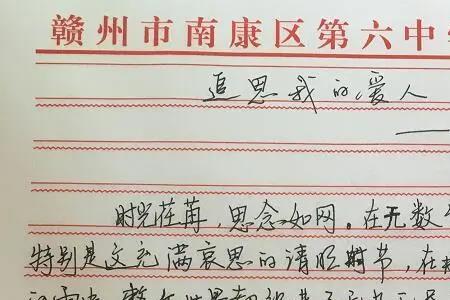 赣州市南康区第六中
追思我的爱人
—
时光荏苒，思念如网。在无数
特别是这充满哀思的清明时节，在